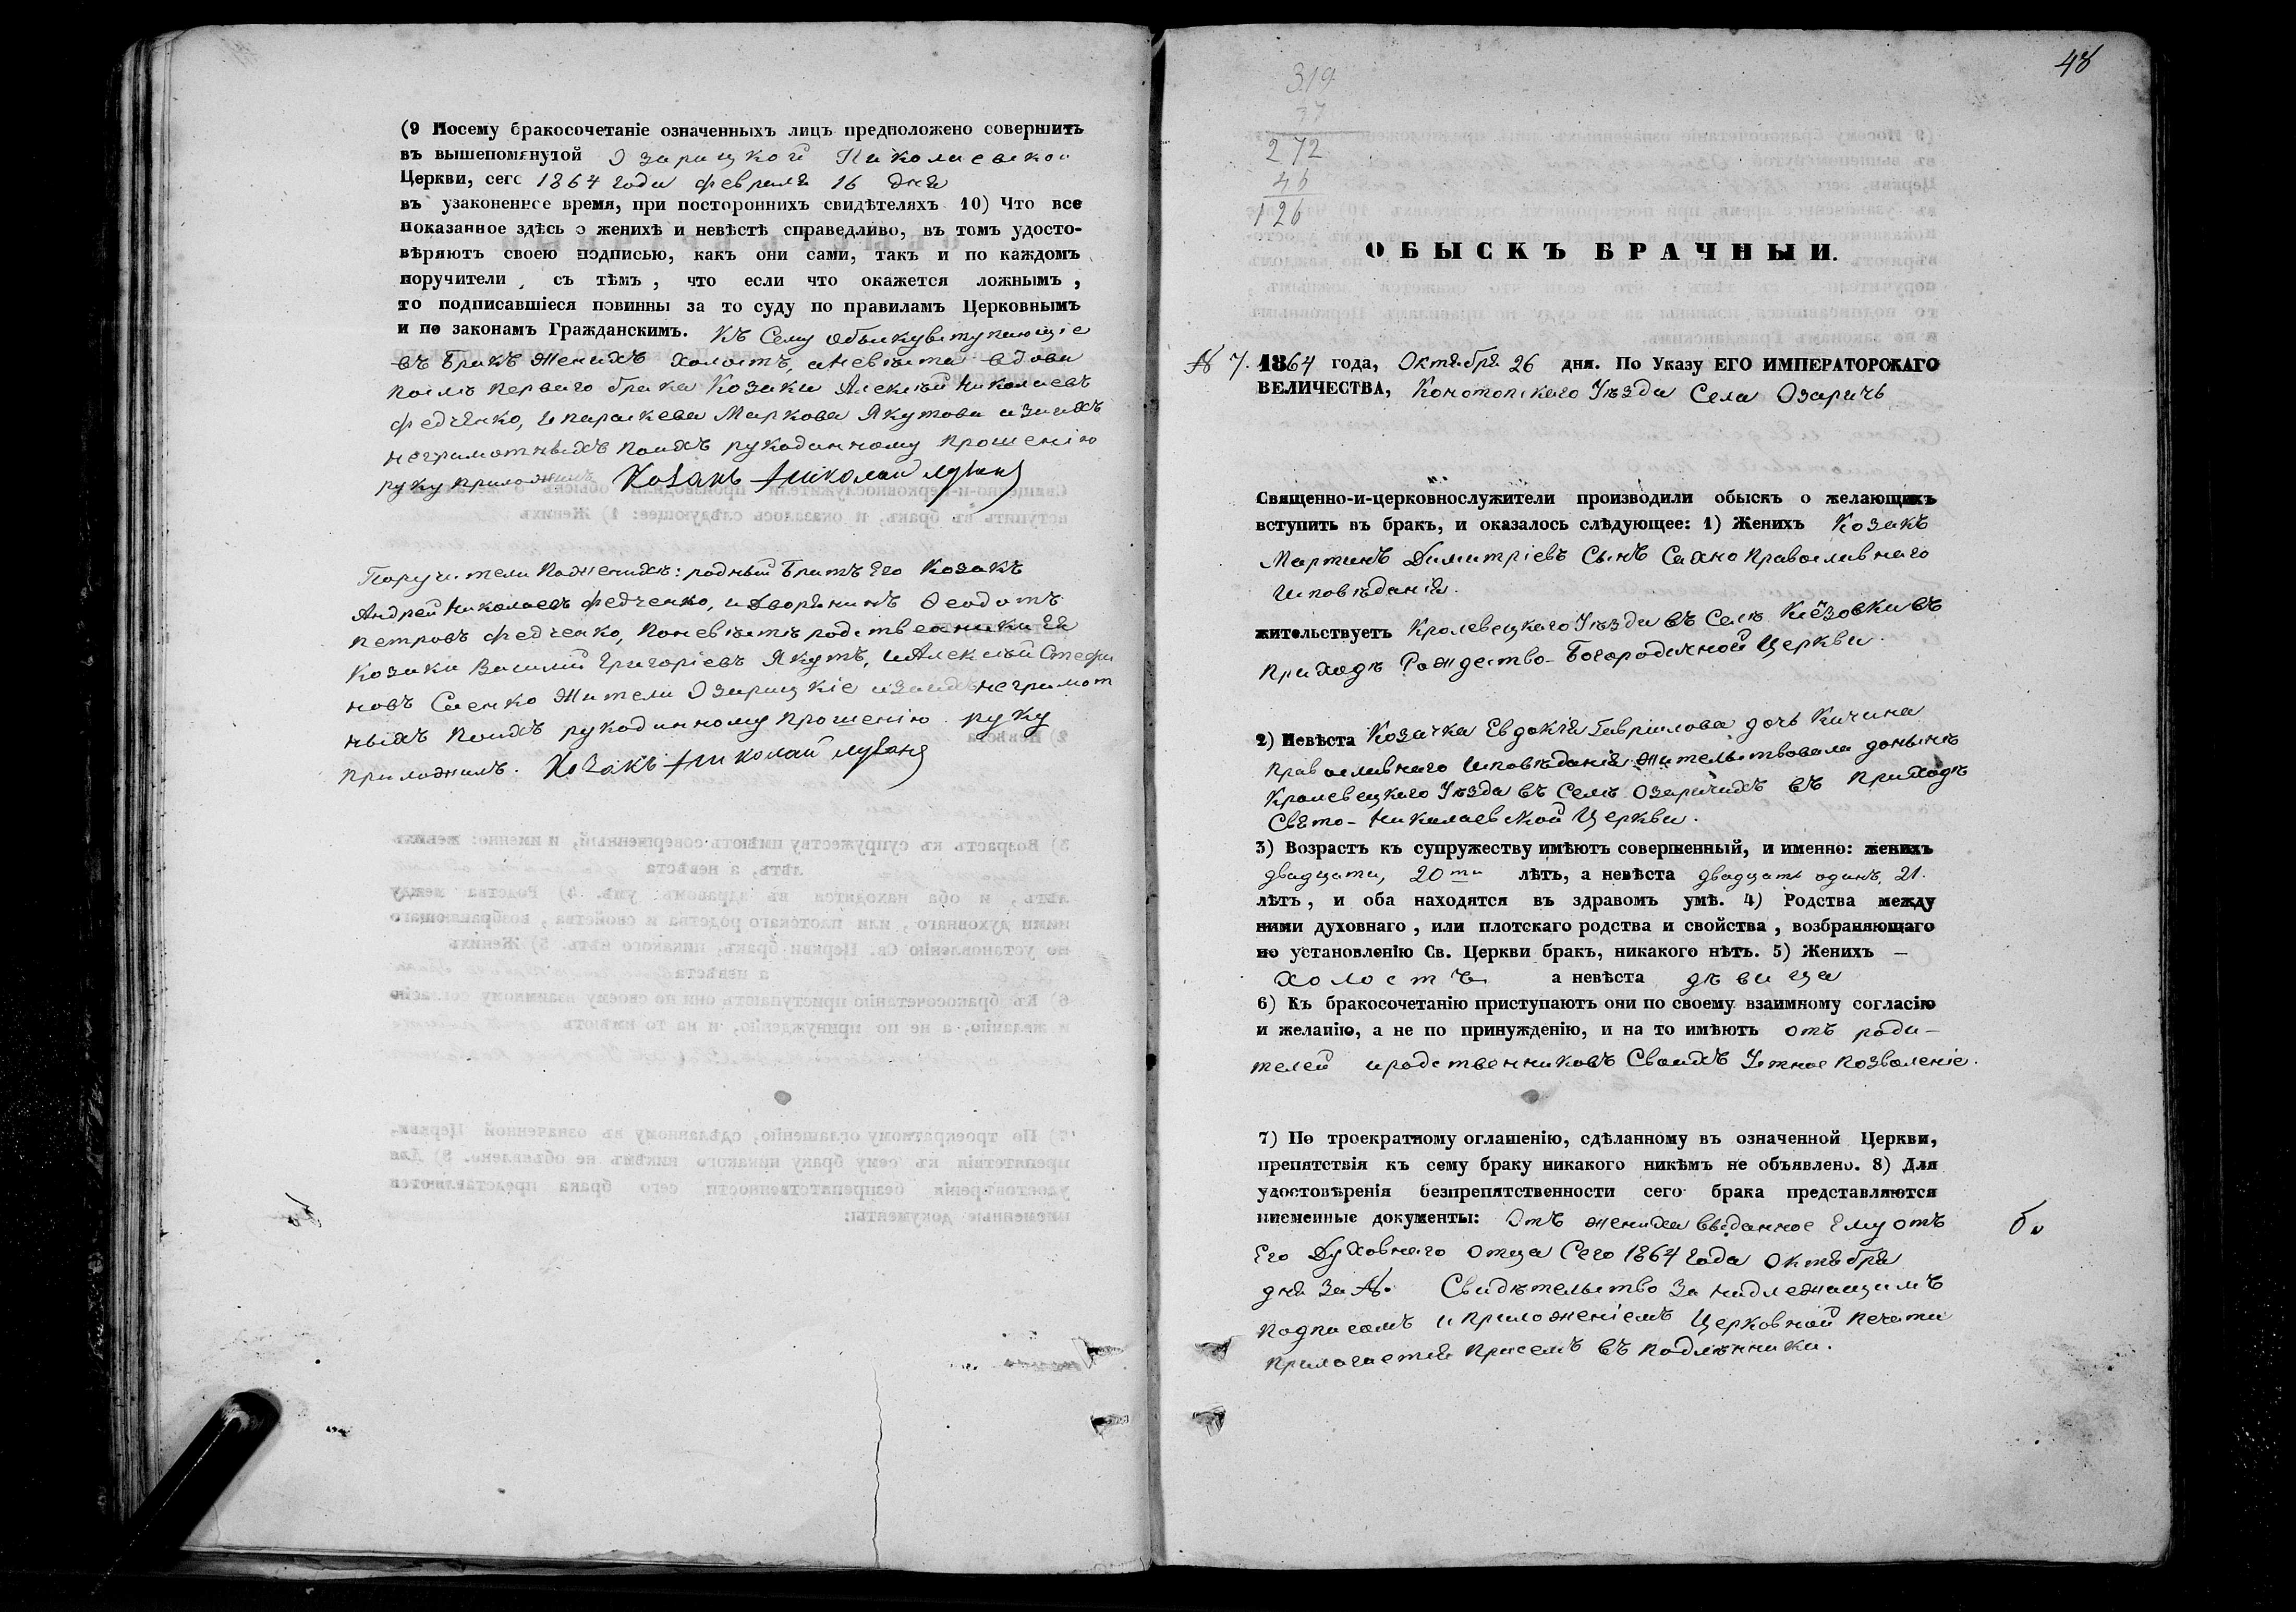 (9 Посему бракосочетаніе означенныхъ лицъ предположено совершить
въ вышепомянутой Озарицкой Николаевской
Церкви, сего 1864 года февраля 16 дня
въ узаконенное время, при постороннихъ свидѣтеляхъ 10) Что все
показанное здѣсь о женихѣ и невѣстѣ справедливо, въ томъ удосто-
вѣряютъ своею подписью, какъ они сами, такъ и по каждомъ
поручители, съ тѣмъ, что если что окажется ложнымъ,
то подписавшіеся повинны за то суду по правиламъ Церковнымъ
и по законамъ Гражданскимъ. Къ сему обыску вступающіе
въ бракъ женихъ холостъ, а невѣста вдова
послѣ перваго брака козаки Алексѣй Николаевъ
Федченко, и параскева Маркова Якутова а за ихъ
неграмотныхъ по ихъ рукоданному прошенію
руку приложилъ Козакъ Николай
Поручители по женихѣ: родный братъ его козакъ
Андрей Николаевъ Федченко, и Дворянинъ Ѳеодотъ
Петровъ Федченко, по невѣстѣ родственники ея
козаки Василій Григоріевъ Якутъ, и Алексѣй Стефа
новъ Саенко жители Озарицкіе а за ихъ неграмот
ныхъ по ихъ рукоданному прошенію руку
приложилъ. Козакъ Николай
48
319
272
46
126
ОБЫСКЪ БРАЧНЫЙ.
№ 7. 1864 года, Октября 26 дня. По Указу ЕГО ИМПЕРАТОРСКАГО
ВЕЛИЧЕСТВА, Конотопскаго Уѣзда Села Озаричъ
Священно-и-церковнослужители производили обыскъ о желающихъ
вступить въ бракъ, и оказалось слѣдующее: 1) Женихъ Козакъ
Мартинъ Димитріевъ сынъ Сахно Православнаго
исповѣданія.
жительствуетъ Кролевецкаго Уѣзда въ Селѣ Клёзовки въ
приходѣ Рождество-Богородичной Церкви.
2) Невѣста Козачка Евдокія Гавріилова дочь Кичина
православнаго исповѣданія жительствовала донынѣ
Кролевецкаго Уѣзда въ Селѣ Озаричахъ въ приходѣ
Свято-Николаевской Церкви.
3) Возрастъ къ супружеству имѣютъ совершенный, и именно: женихъ
двадцати, 20ти лѣтъ, а невѣста двадцать одинъ, 21.
лѣтъ, и оба находятся въ здравомъ умѣ. 4) Родства между
ними духовнаго, или плотскаго родства и свойства, возбраняющаго
по установленію Св. Церкви бракъ, никакого нѣтъ. 5) Женихъ —
холостъ а невѣста дѣвица
6) Къ бракосочетанію приступаютъ они по своему взаимному согласію
и желанію, а не по принужденію, и на то имѣютъ отъ роди-
телей и родственниковъ своихъ Устное позволеніе.
7) По троекратному оглашенію, сдѣланному въ означенной Церкви,
препятствія къ сему браку никакого никѣмъ не объявлено. 8) Для
удостовѣренія безпрепятственности сего брака представляются
письменные документы: Отъ жениха выданное ему отъ
его Духовнаго отца сего 1864 года Октября
дня за № Свидѣтельство за надлежащимъ
подписомъ и приложеніемъ Церковной печати
прилагается при семъ въ подлѣнники.